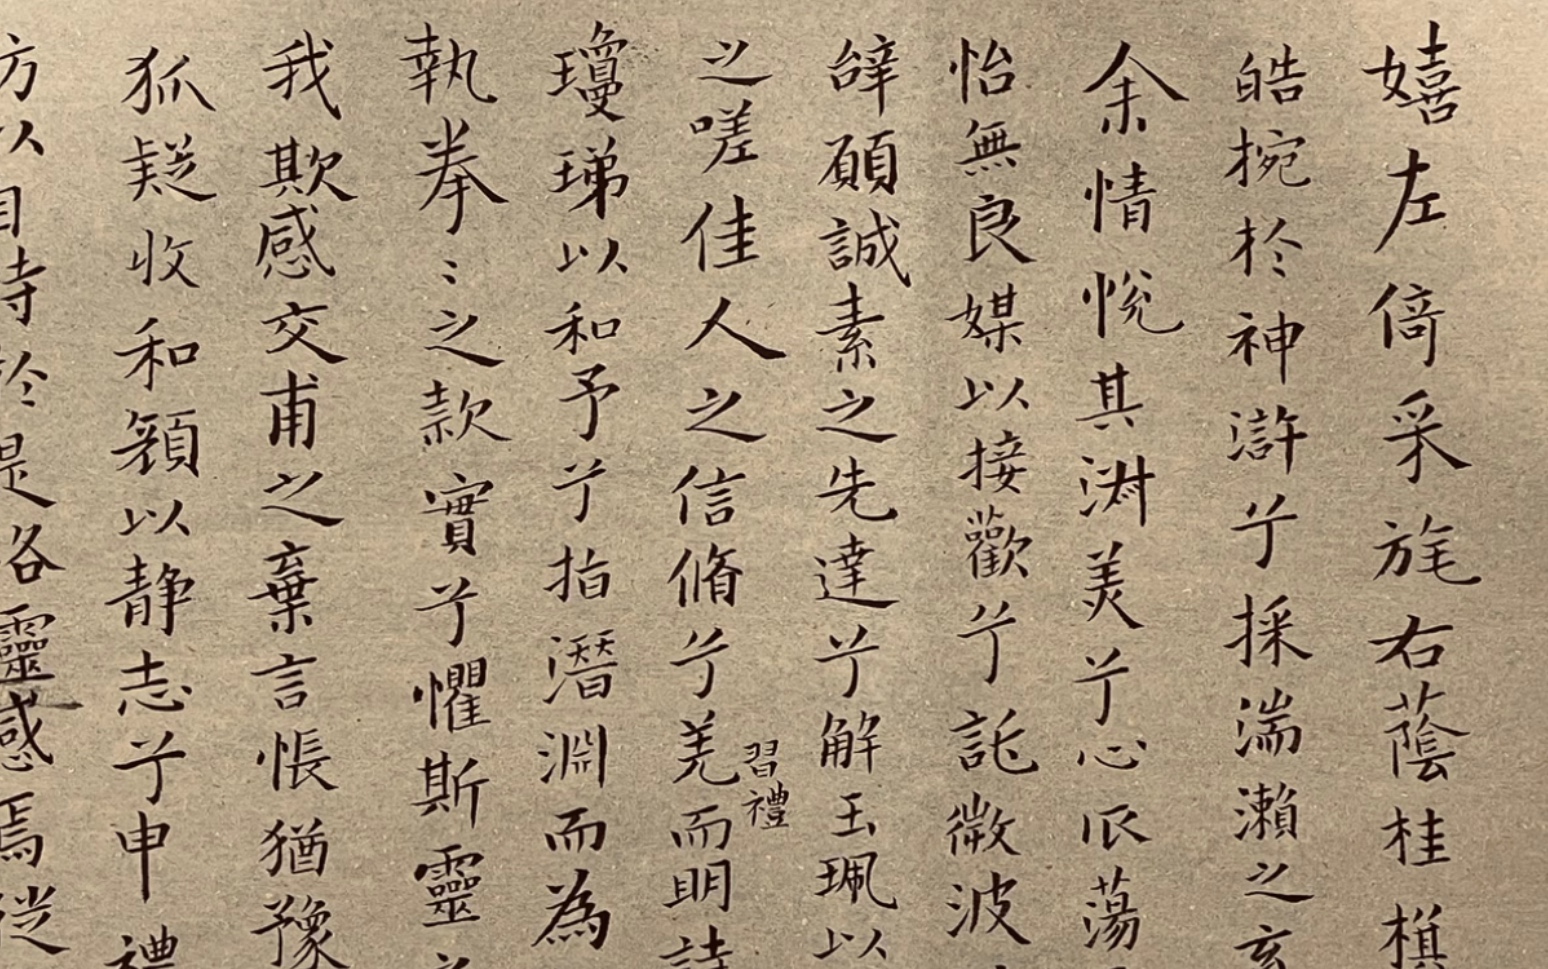 嬉左倚采旄右蔭桂㫋
皓捥於神滸兮採湍瀨之玄
余情悅其淑美兮心振蕩
怡無良媒以接歡兮託微波
辭願誠素之先達兮解玉珮以
之嗟佳人之信脩兮羌習禮而明詩
瓊珶以和予兮指潛淵而為
執拳〻之款實兮懼斯靈之
我欺感交甫之棄言悵猶豫
狐疑收和顏以静志兮申禮
方以自持於是各靈感焉從